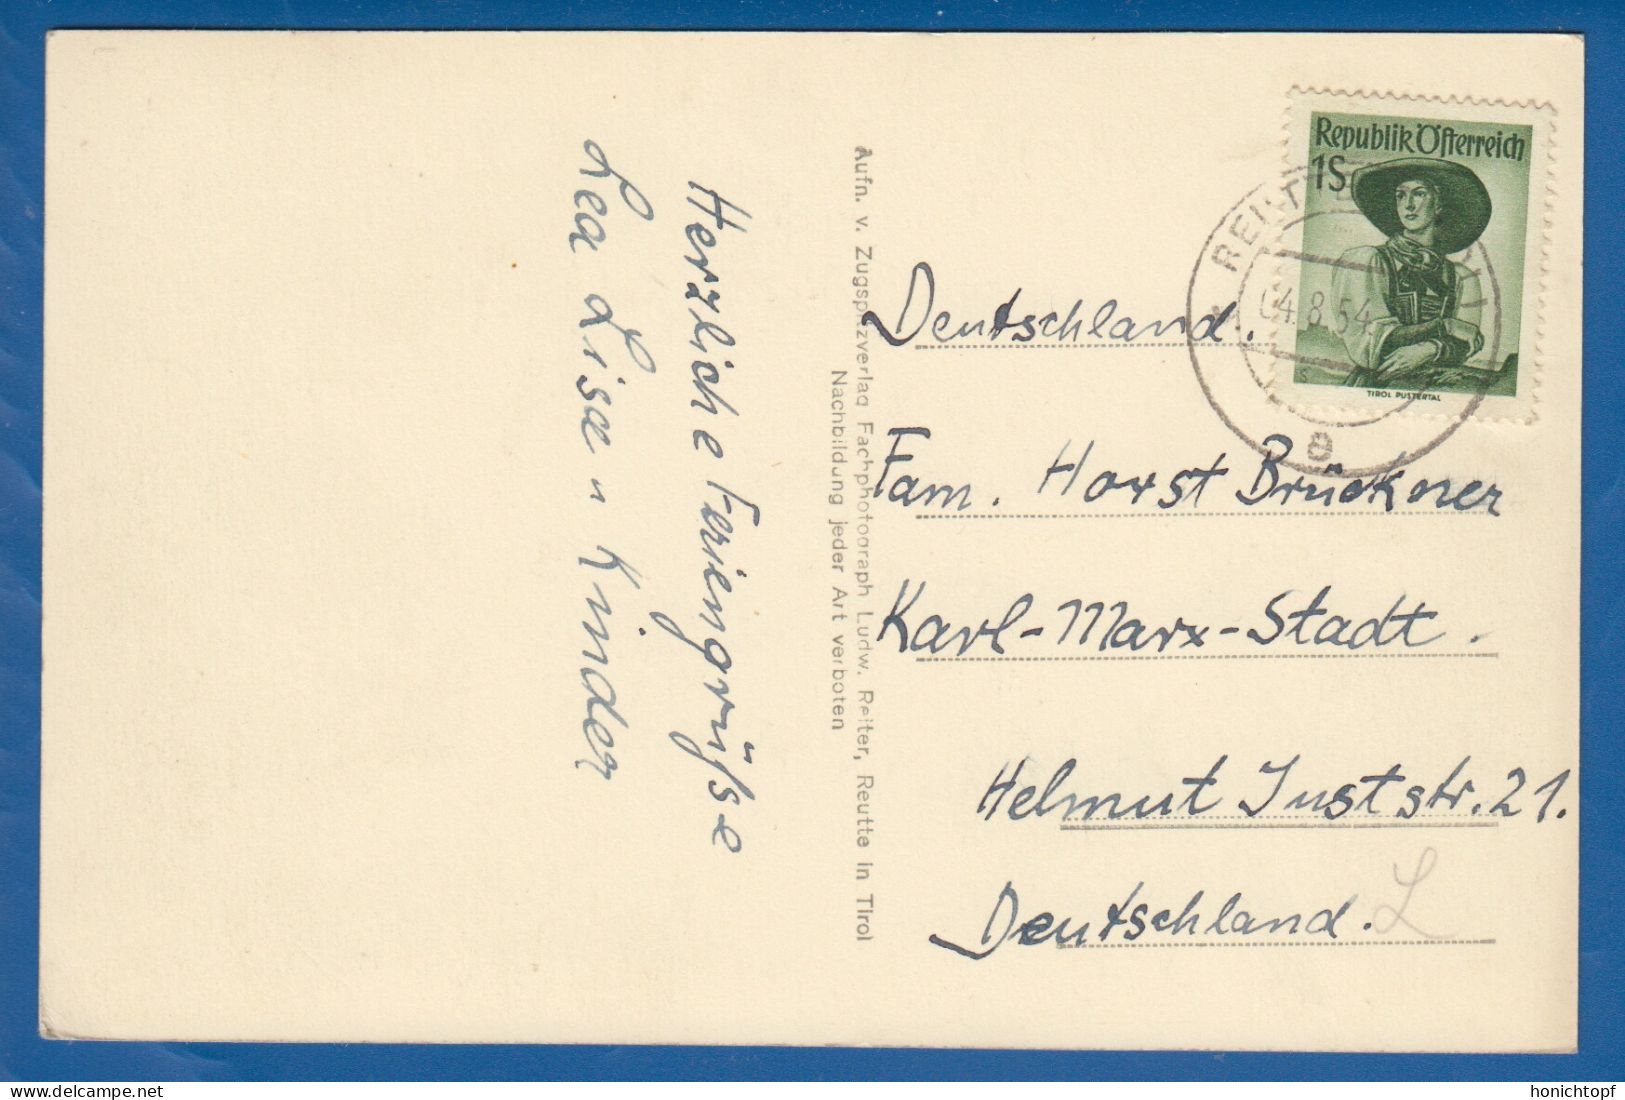 Herzliche Feriengrüsse
Lea Lise u Kinder
Aufn. v. Zugspitzverlag Fachphotograph Ludw. Reiter, Reutte in Tirol
Nachbildung jeder Art verboten
Republik Österreich
1S
TIROL PUSTERTAL
04.8.54
e
Deutschland.
Fam. Horst Brückner
Karl-Marx-Stadt.
Helmut Juststr. 21.
Deutschland.
L
Copyright by delcampe.net
honichtopf